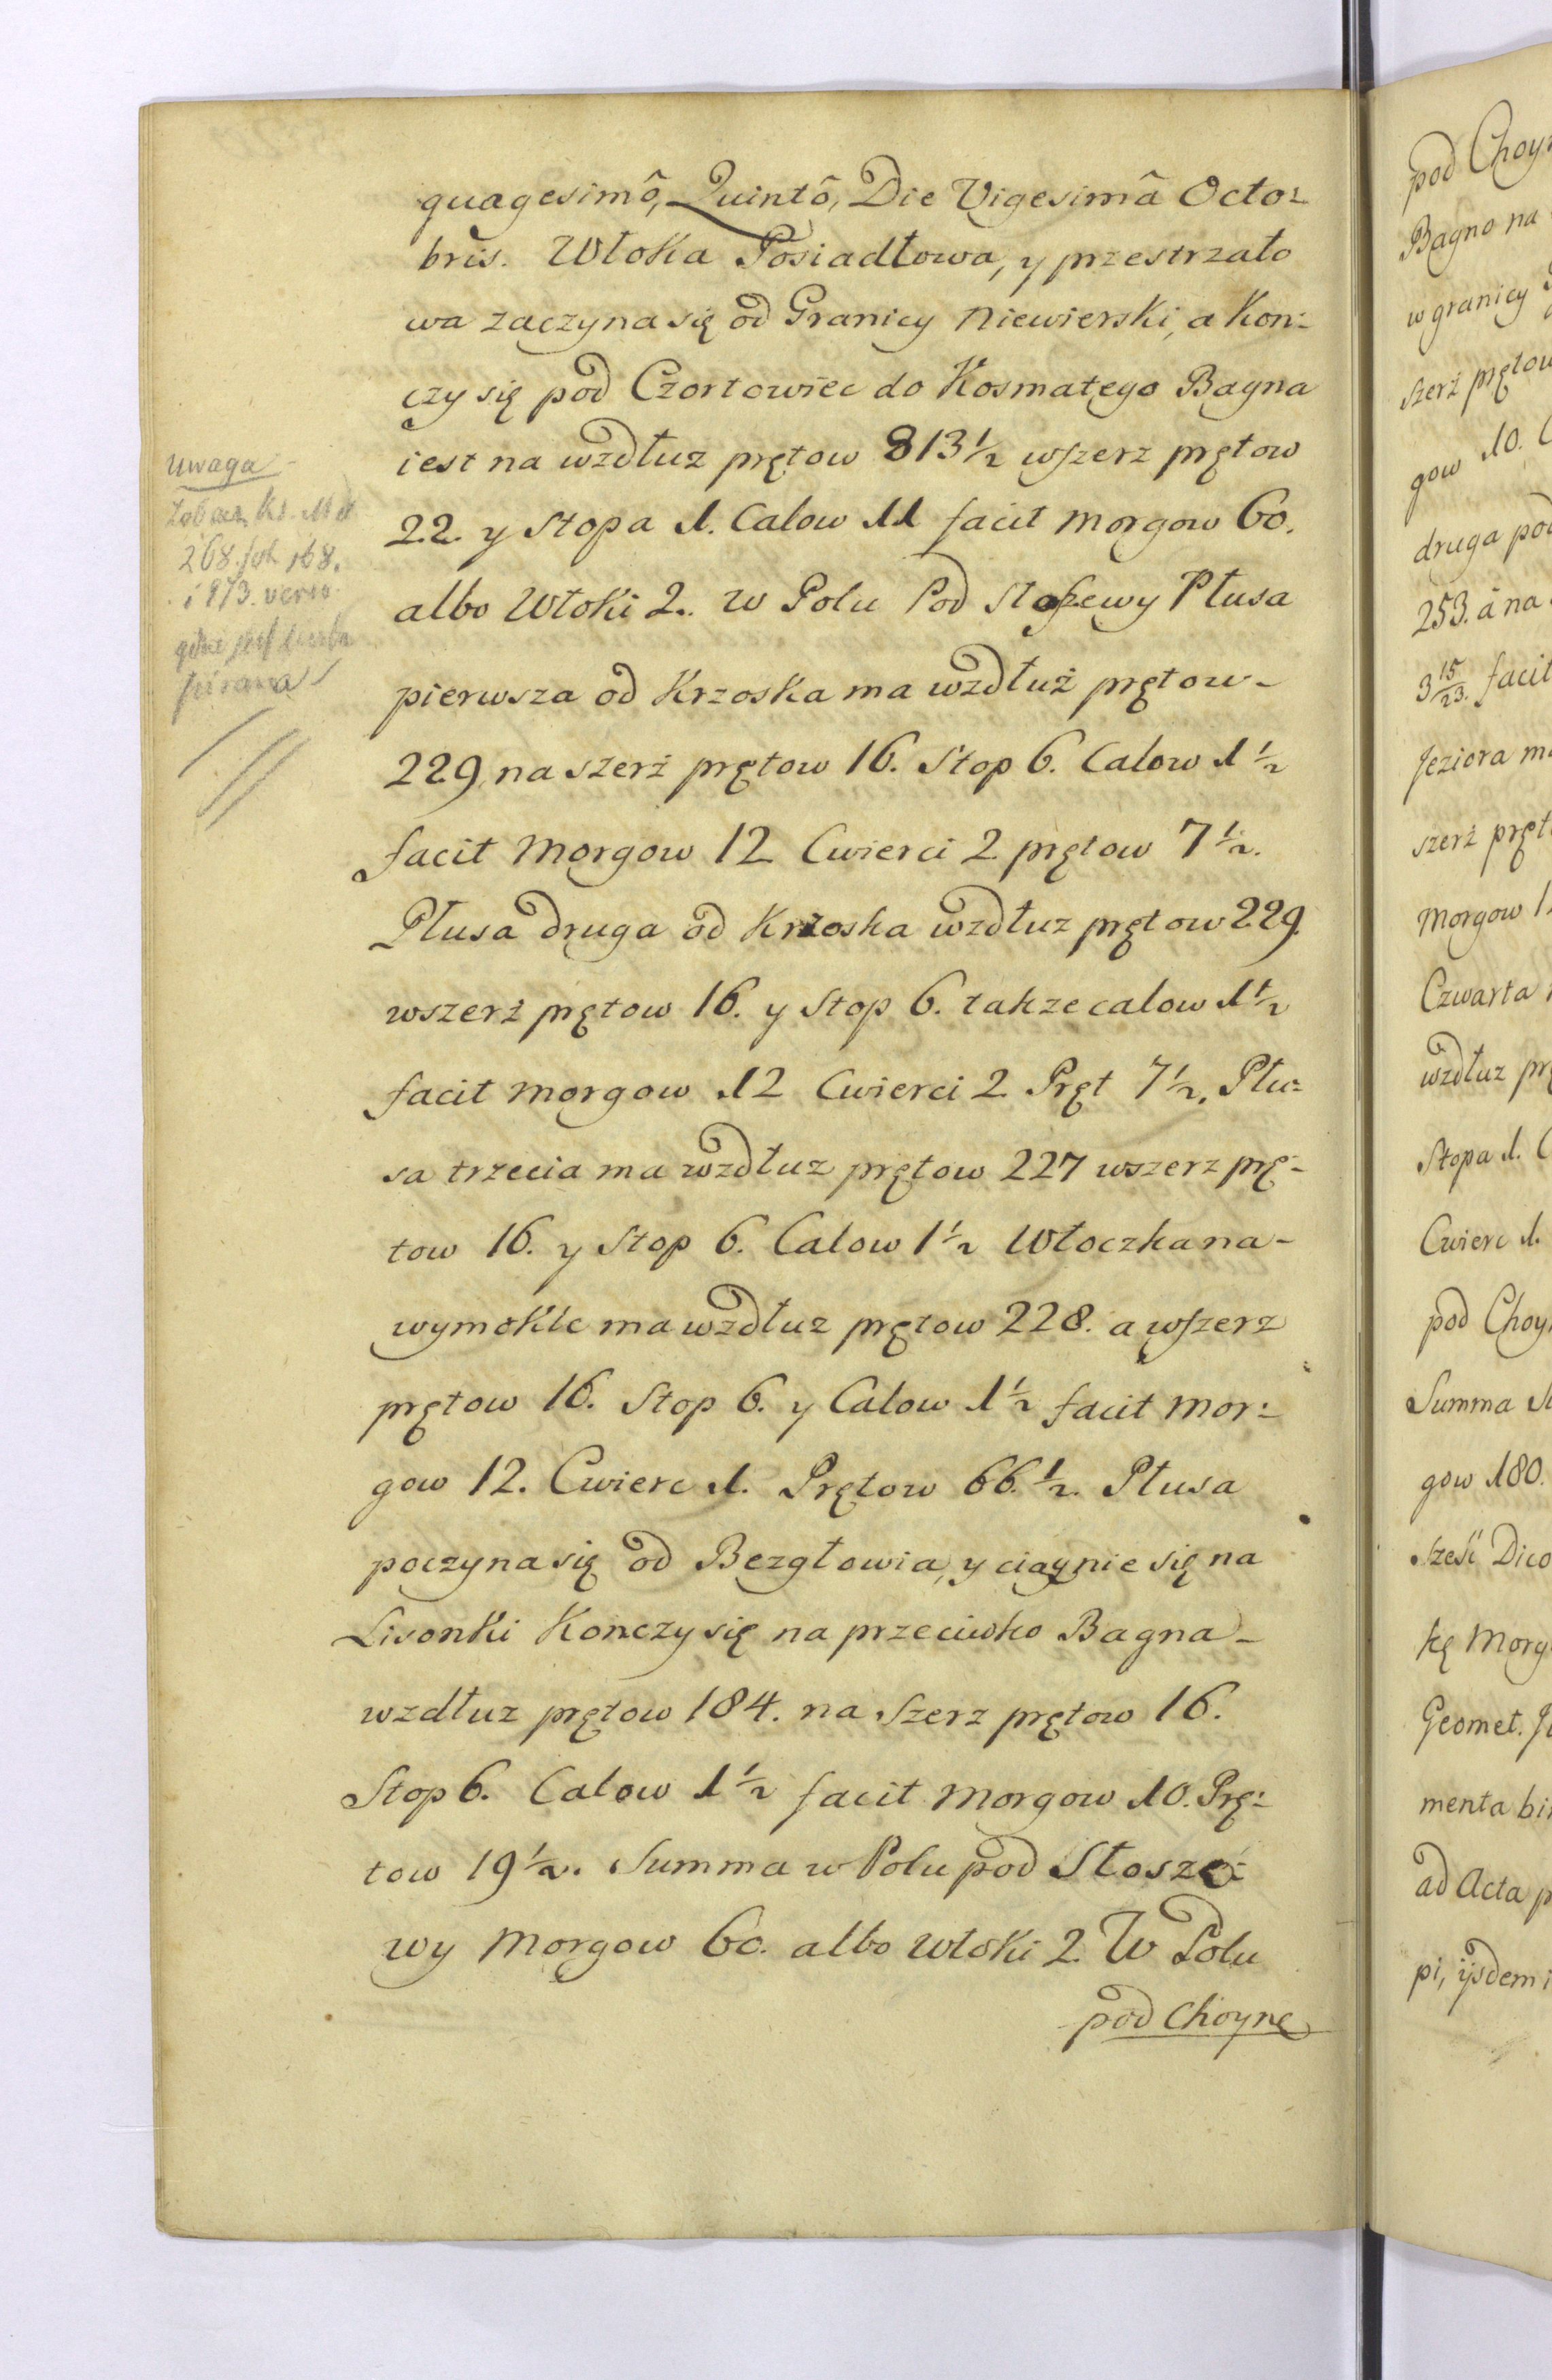 quagesimô, Quintô, Die Vigesimâ Octo=
bris. Włoka Posiadłowa, y przestrzało
wa zaczyna się od Granicy Niewierski, a Kon=
czy się pod Czortowiec do Kosmatego Bagna
iest na wzdłuz prętow 813 1/2 wszerz prętow
22. y Stopa 1. Calow 11 facit Morgow 60.
albo Włoki 2. w Polu Pod Stoszewy Płusa
pierwsza od Krzoska ma wzdłuż prętow-
229 na szerż prętow 16. Stop 6. Calow 1 1/2
facit Morgow 12 Cwierci 2 prętow 7 1/2.
Płusa druga od Krzoska wzdłuz prętow 229.
wszerż prętow 16. y Stop 6. takze calow 1 1/2
facit morgow 12 Cwierci 2 Pręt 7 1/2. Płu=
sa trzecia ma wzdłuz prętow 227 wszerz prę-
tow 16. y Stop 6. Calow 1 1/2 Włoczka na-
wymokłe ma wzdłuz prętow 228. a wszerz
prętow 16. Stop 6. y Calow 1 1/2 facit Mor=
gow 12. Cwierc 1. Prętow 66. 1/2. Płusa
poczyna się od Bezgłowia, y ciągnie się na
Lisonki Konczy się na przeciwko Bagna-
wzdłuz prętow 184. na Szerz prętow 16.
Stop 6. Calow 1 1/2 facit Morgow 10. Prę=
tow 19 1/2. Summa w Polu pod Stosze=
wy Morgow 60. albo włoki 2. W Polu
pod Choynę
uwaga
268. fol. 168.
i 173. verso
pod Choy
Bagno na
w granicy
szerż prętow
gow 10. C
druga pod
253. â na
3 15/23. facit
Jeziora ma
szerż pręt
Morgow 1
Czwarta
wzdłuz prę
Stopa 1. C
Cwierc 1.
pod Choy
Summa
gow 180.
Sześć Dico
kę Morg
Geomet. J
menta bi
ad Acta p
pi, ijsdem i